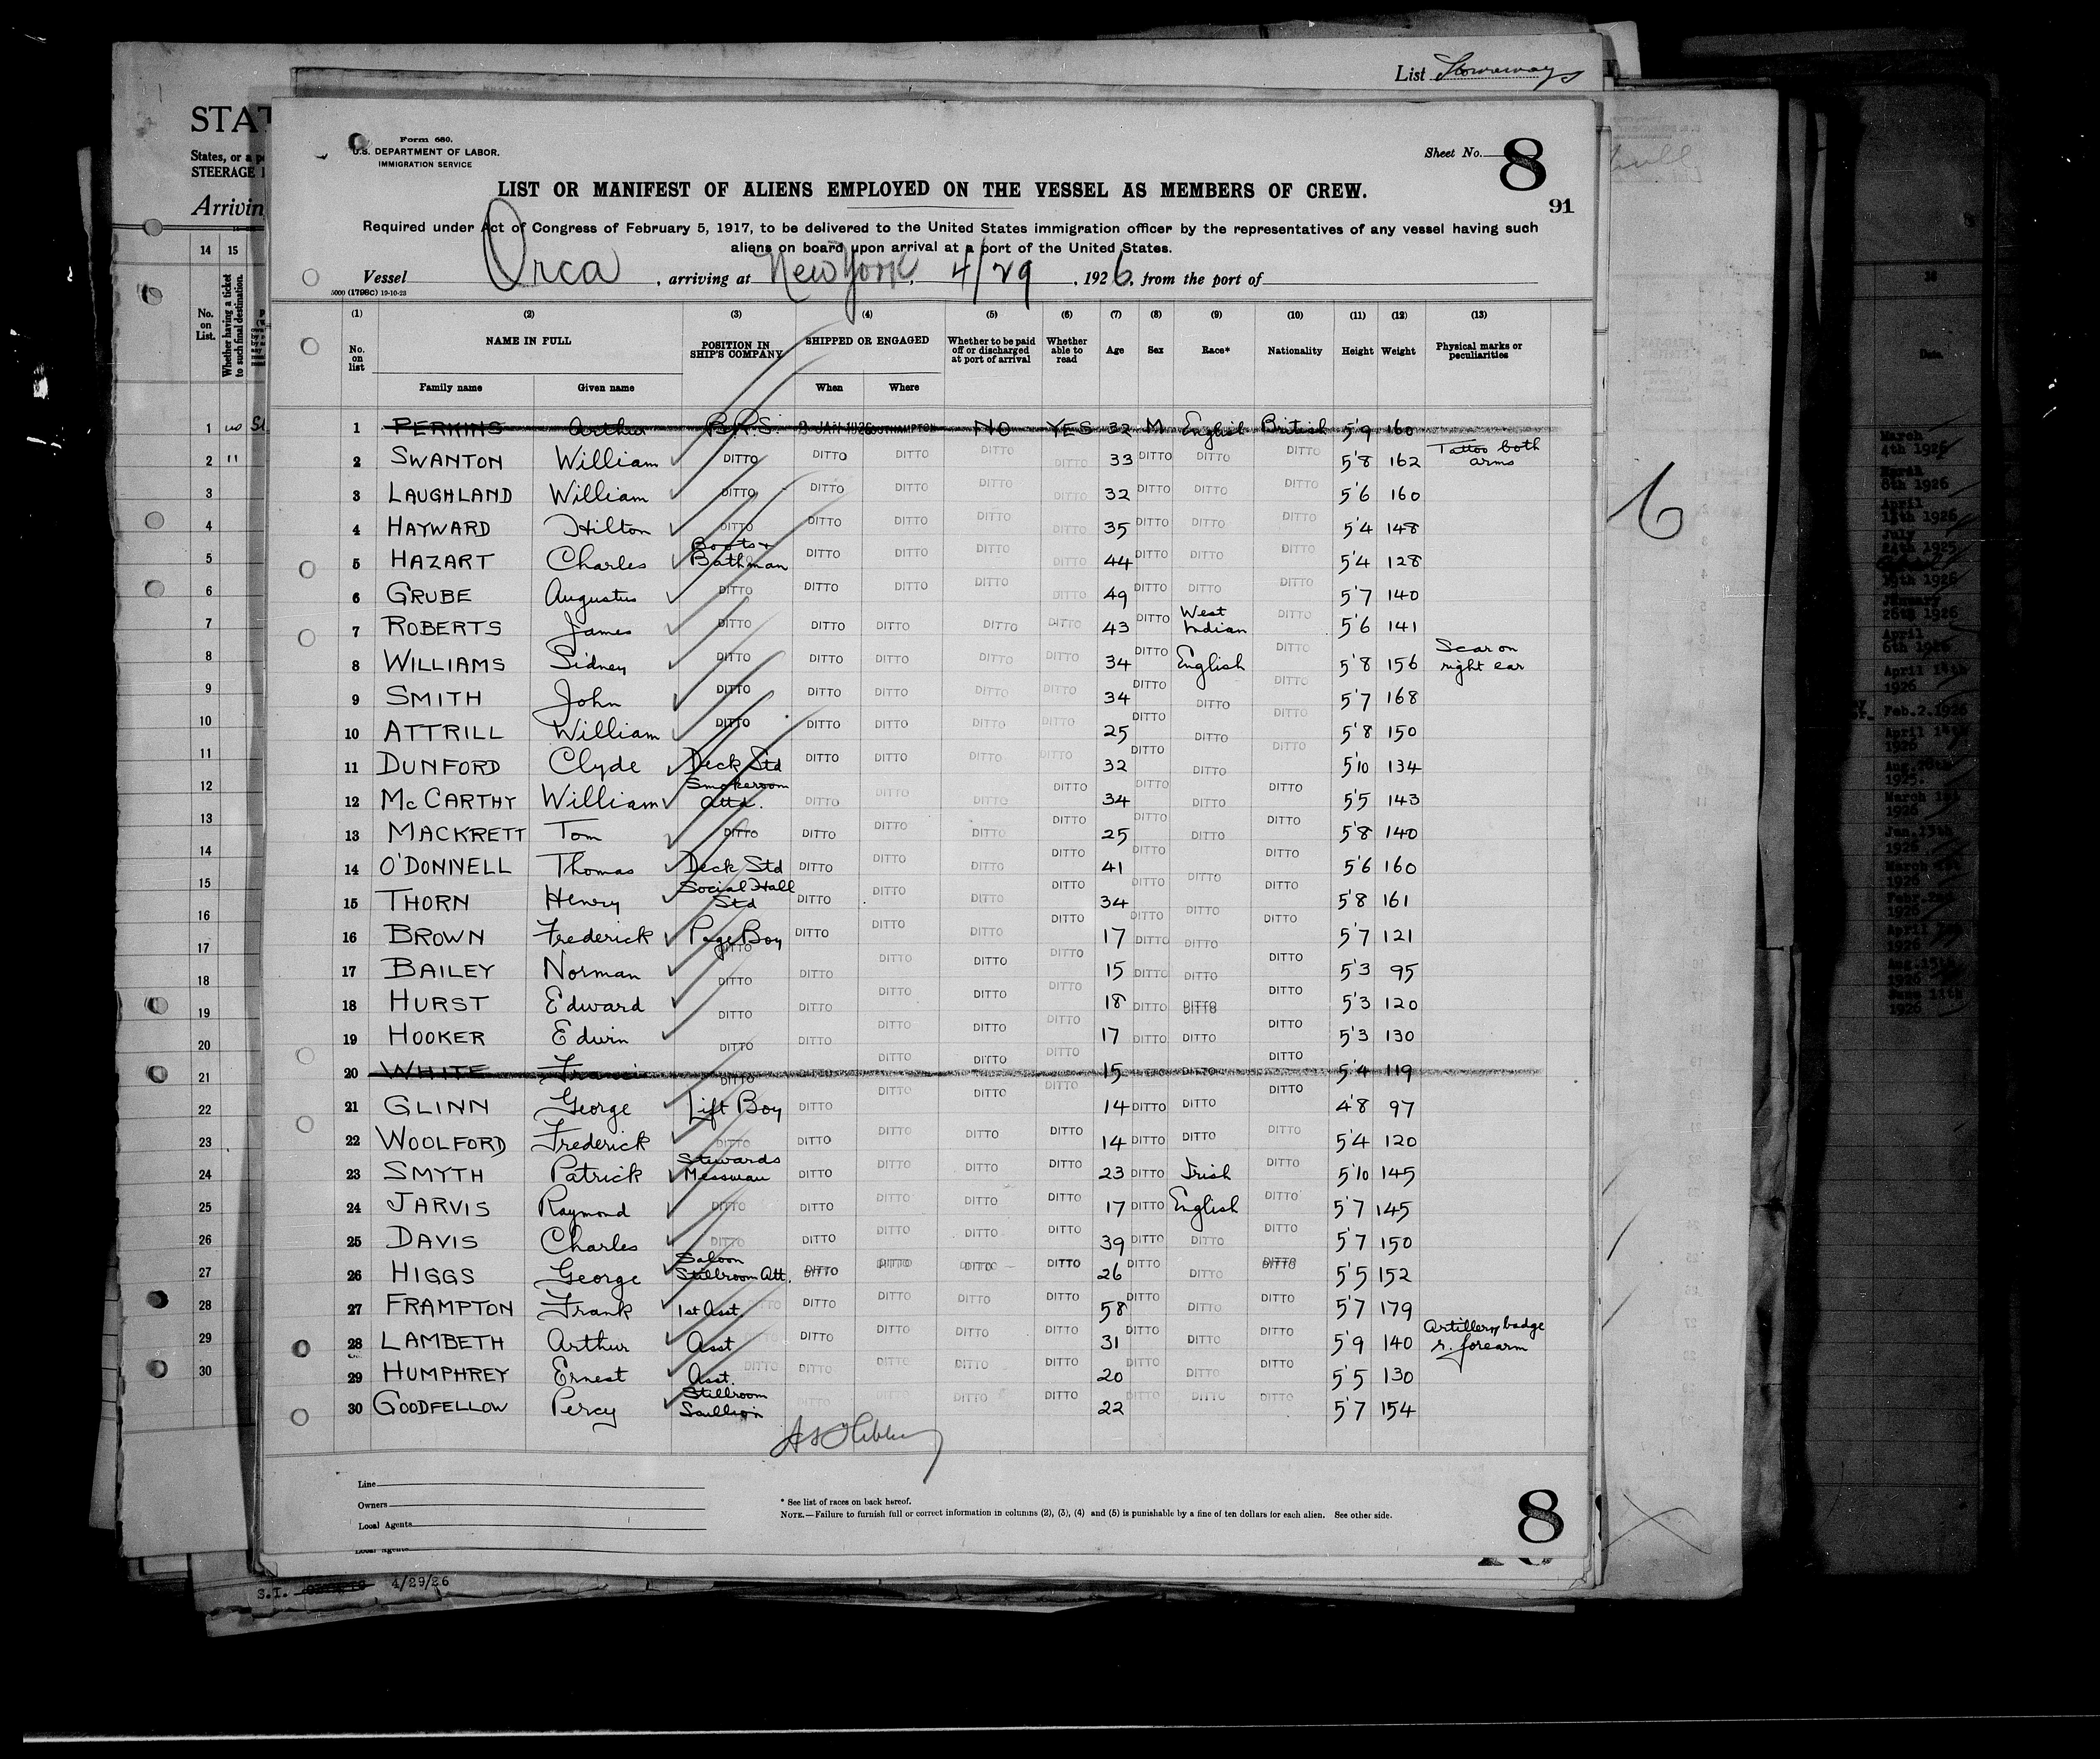 List Stowaways
STAT
States, or a p
STEERAGE
Arrivin
Form 680.
U.S. DEPARTMENT OF LABOR.
IMMIGRATION SERVICE
Sheet No. 8
91
LIST OR MANIFEST OF ALIENS EMPLOYED ON THE VESSEL AS MEMBERS OF CREW.
Required under Act of Congress of February 5, 1917, to be delivered to the United States immigration officer by the representatives of any vessel having such
aliens on board upon arrival at a port of the United States.
Vessel Orca, arriving at New York, 4/29, 1926, from the port of
5000 (1798C) 19-10-23
(1) (2) (3) (4) (5) (6) (7) (8) (9) (10) (11) (12) (13)
No. on list NAME IN FULL POSITION IN SHIP'S COMPANY SHIPPED OR ENGAGED Whether to be paid off or discharged at port of arrival Whether able to read Age Sex Race* Nationality Height Weight Physical marks or peculiarities
Family name Given name When Where
1 PERKINS Arthur B.R.S. 8 JAN 1926 SOUTHAMPTON NO YES 32 M English British 5'9 160
2 SWANTON William DITTO DITTO DITTO DITTO DITTO 33 DITTO DITTO DITTO 5'8 162 Tattoo both arms
3 LAUGHLAND William DITTO DITTO DITTO DITTO DITTO 32 DITTO DITTO DITTO 5'6 160
4 HAYWARD Hilton DITTO DITTO DITTO DITTO DITTO 35 DITTO DITTO DITTO 5'4 148
5 HAZART Charles Boots + Bathman DITTO DITTO DITTO DITTO 44 DITTO DITTO DITTO 5'4 128
6 GRUBE Augustus DITTO DITTO DITTO DITTO DITTO 49 DITTO DITTO DITTO 5'7 140
7 ROBERTS James DITTO DITTO DITTO DITTO DITTO 43 DITTO West Indian DITTO 5'6 141
8 WILLIAMS Sidney DITTO DITTO DITTO DITTO DITTO 34 DITTO English DITTO 5'8 156 Scar on right ear
9 SMITH John DITTO DITTO DITTO DITTO DITTO 34 DITTO DITTO DITTO 5'7 168
10 ATTRILL William DITTO DITTO DITTO DITTO DITTO 25 DITTO DITTO DITTO 5'8 150
11 DUNFORD Clyde Deck Std DITTO DITTO DITTO DITTO 32 DITTO DITTO DITTO 5'10 134
12 McCARTHY William Smokeroom Attd. DITTO DITTO DITTO DITTO 34 DITTO DITTO DITTO 5'5 143
13 MACKRETT Tom DITTO DITTO DITTO DITTO DITTO 25 DITTO DITTO DITTO 5'8 140
14 O'DONNELL Thomas Deck Std DITTO DITTO DITTO DITTO 41 DITTO DITTO DITTO 5'6 160
15 THORN Henry Social Hall Std DITTO DITTO DITTO DITTO 34 DITTO DITTO DITTO 5'8 161
16 BROWN Frederick Page Boy DITTO DITTO DITTO DITTO 17 DITTO DITTO DITTO 5'7 121
17 BAILEY Norman DITTO DITTO DITTO DITTO DITTO 15 DITTO DITTO DITTO 5'3 95
18 HURST Edward DITTO DITTO DITTO DITTO DITTO 18 DITTO DITTO DITTO 5'3 120
19 HOOKER Edwin DITTO DITTO DITTO DITTO DITTO 17 DITTO DITTO DITTO 5'3 130
20 WHITE Francis DITTO DITTO DITTO DITTO DITTO 15 DITTO DITTO DITTO 5'4 119
21 GLINN George Lift Boy DITTO DITTO DITTO DITTO 14 DITTO DITTO DITTO 4'8 97
22 WOOLFORD Frederick DITTO DITTO DITTO DITTO DITTO 14 DITTO DITTO DITTO 5'4 120
23 SMYTH Patrick Stewards Messman DITTO DITTO DITTO DITTO 23 DITTO Irish DITTO 5'10 145
24 JARVIS Raymond DITTO DITTO DITTO DITTO DITTO 17 DITTO English DITTO 5'7 145
25 DAVIS Charles DITTO DITTO DITTO DITTO DITTO 39 DITTO DITTO DITTO 5'7 150
26 HIGGS George Saloon Stillroom Att. DITTO DITTO DITTO DITTO 26 DITTO DITTO DITTO 5'5 152
27 FRAMPTON Frank 1st Asst DITTO DITTO DITTO DITTO DITTO 58 DITTO DITTO DITTO 5'7 179
28 LAMBETH Arthur Asst DITTO DITTO DITTO DITTO DITTO 31 DITTO DITTO DITTO 5'9 140 Artillery badge r. forearm
29 HUMPHREY Ernest Asst. DITTO DITTO DITTO DITTO DITTO 20 DITTO DITTO DITTO 5'5 130
30 GOODFELLOW Percy Stillroom Scullion DITTO DITTO DITTO DITTO 22 DITTO DITTO DITTO 5'7 154
Line
Owners
Local Agents
* See list of races on back hereof.
NOTE.—Failure to furnish full or correct information in columns (2), (3), (4) and (5) is punishable by a fine of ten dollars for each alien. See other side.
8
Local Agents
S.I. 4/29/26
6